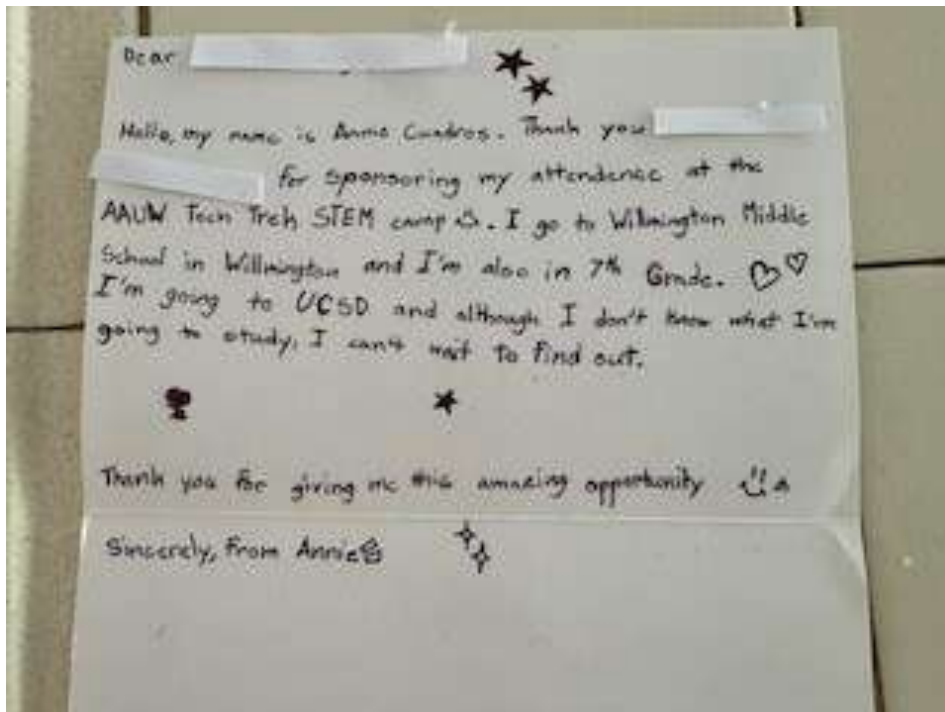 Dear
Hello, my name is Annie Cuadros. Thank you
for sponsoring my attendence at the
AAUW Tech Trek STEM camp. I go to Wilmington Middle
School in Willmington and I'm also in 7th Grade.
I'm going to UCSD and although I don't know what I'm
going to study, I can't wait to find out.
Thank you for giving me this amazing opportunity
Sincerely, From Annie